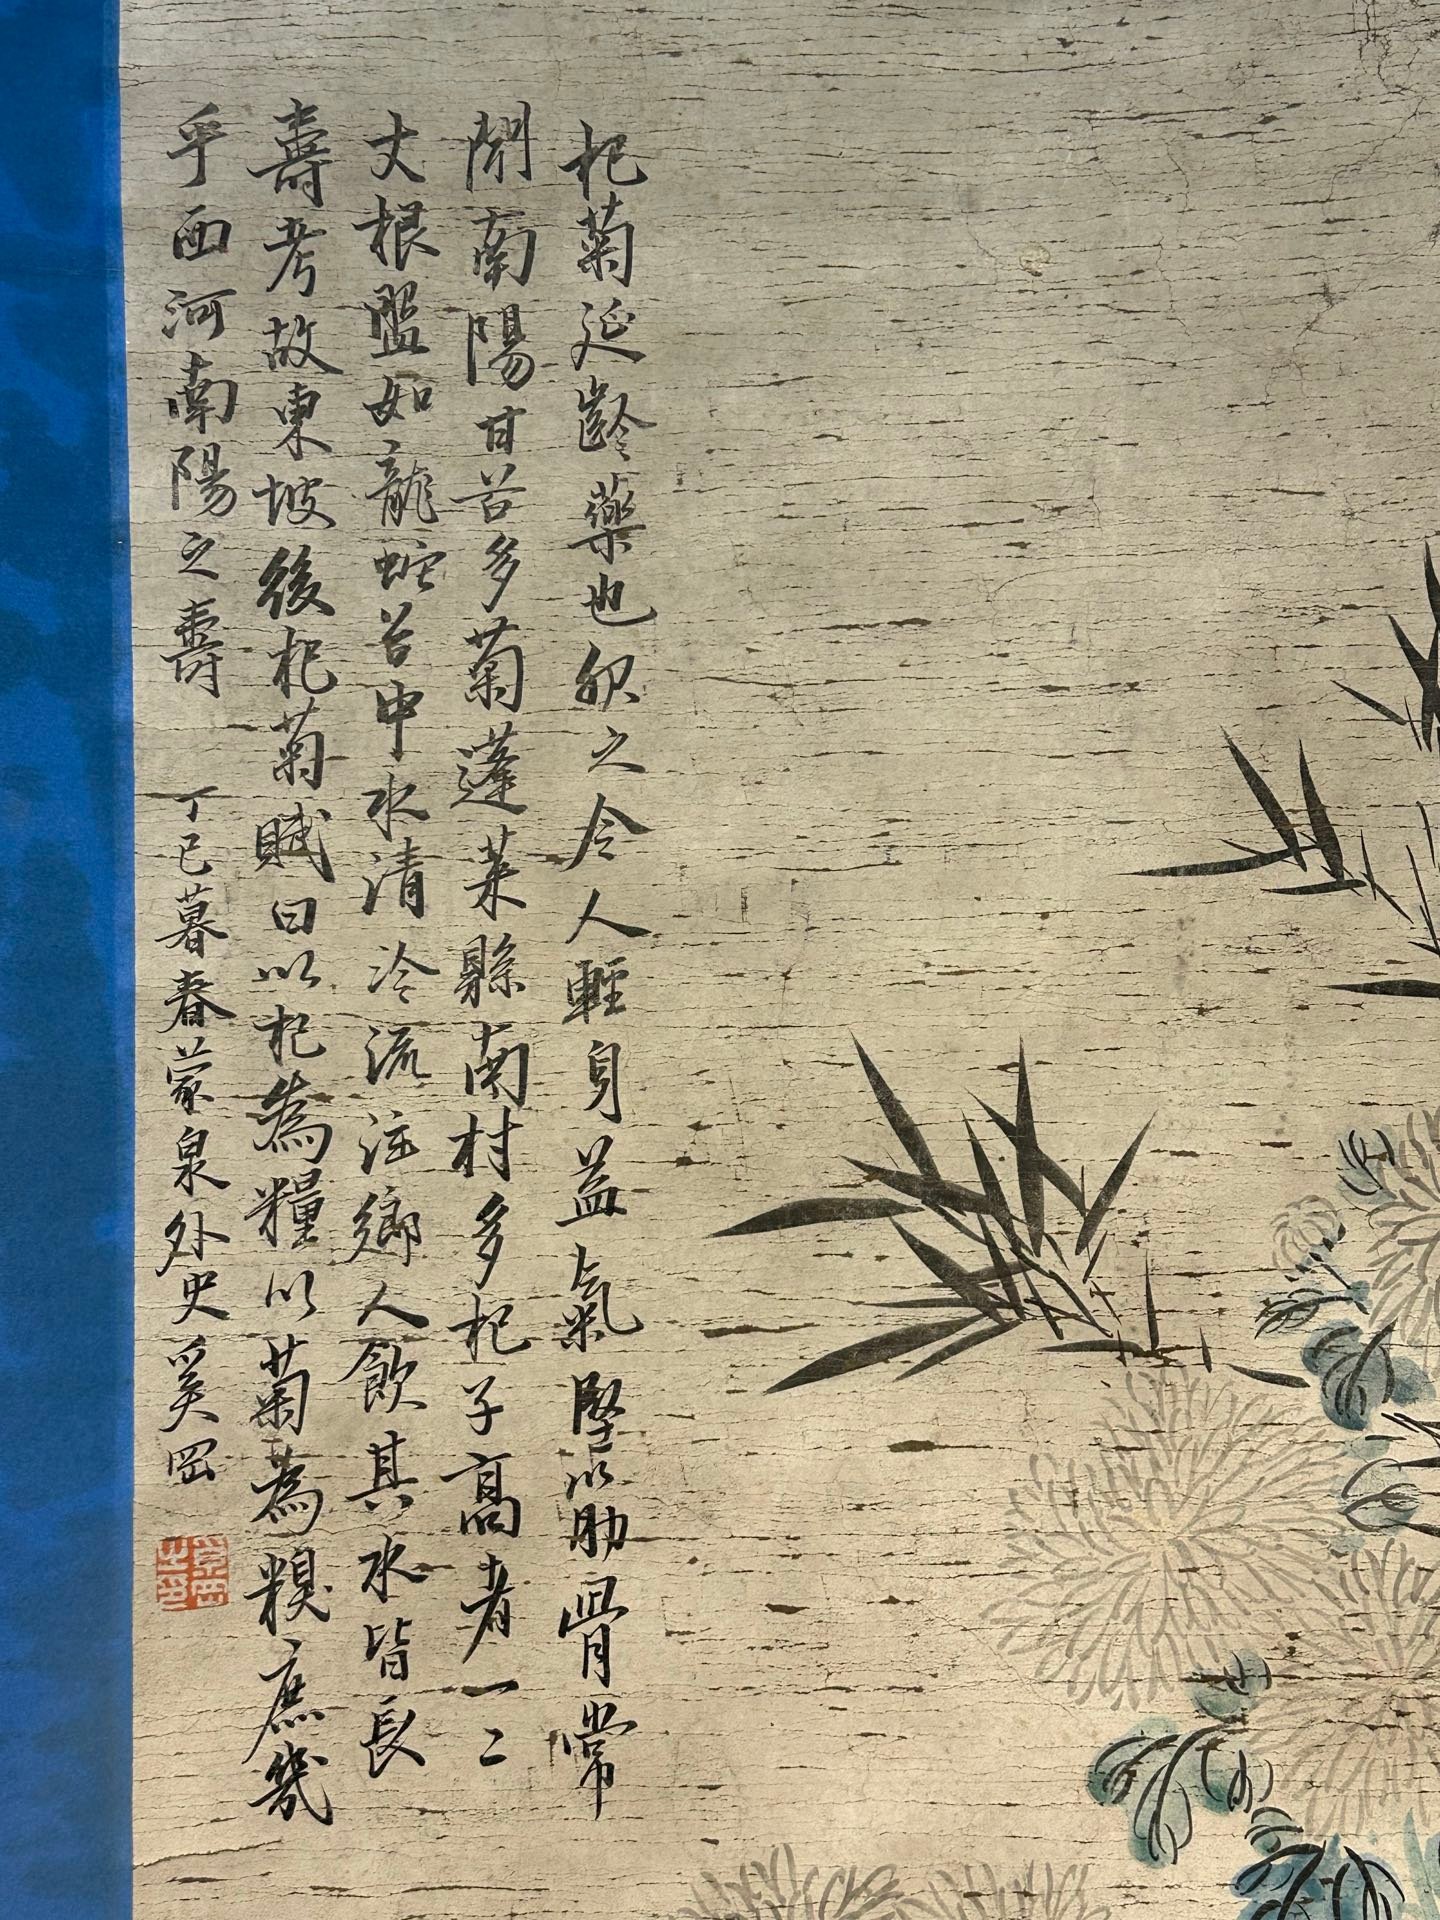 杞菊延齡藥也服之令人輕身益氣堅筋骨常
聞南陽甘谷多菊蓬萊縣南村多杞子高者一二
丈根盤如龍蛇谷中水清泠流注鄉人飲其水皆長
壽考故東坡後杞菊賦曰以杞為糧以菊為糗庶幾
乎西河南陽之壽 丁巳暮春蒙泉外史奚岡
奚岡之印